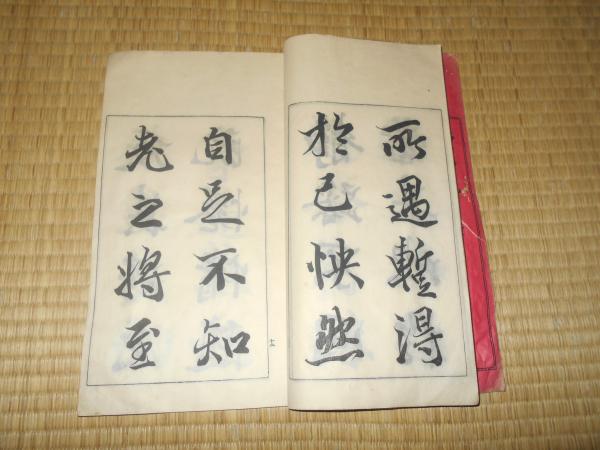 所遇暫得
於己怏然
自足不知
老之将至